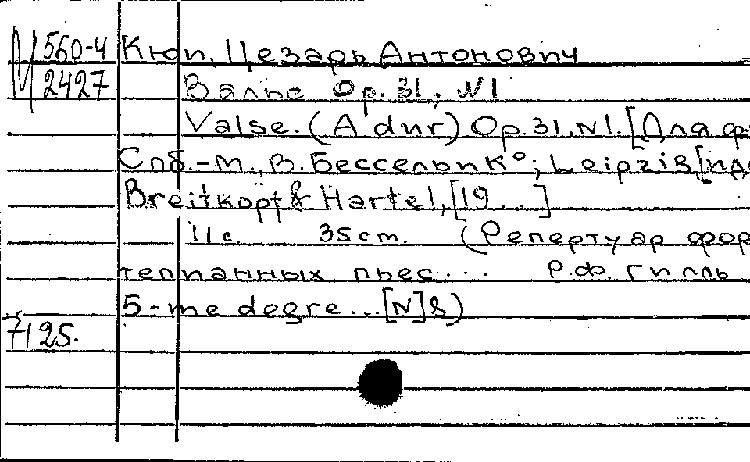 М 560-4 Кюи, Цезарь Антонович
2427 Вальс Op. 31, №1
Valse. (A dur) Op. 31, №1. [Для ф
Спб.-М., В. Бессель и Кº; Leipzig [и др
Breitkopf & Hartel, [19...]
11 с. 35 cm. (Репертуар фор
тепианных пьес... Р.ф. Гилль
5-me degre... [N] 8)
7125.